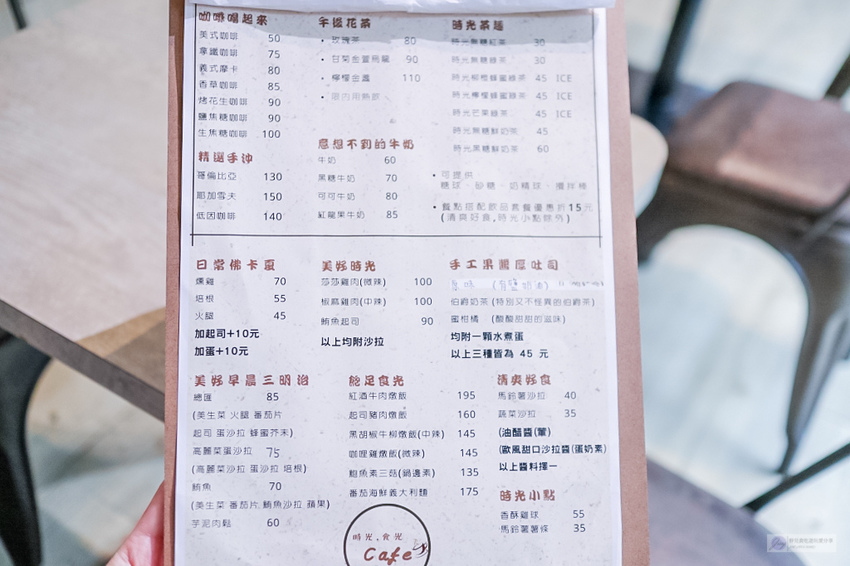 咖啡喝起來
美式咖啡 50
拿鐵咖啡 75
義式摩卡 80
香草咖啡 85
烤花生咖啡 90
鹽焦糖咖啡 90
生焦糖咖啡 100
精選手沖
哥倫比亞 130
耶加雪夫 150
低因咖啡 140
午後花茶
• 玫瑰茶 80
• 甘菊金萱烏龍 90
• 檸檬金盞 110
• 店內用熱飲
意想不到的牛奶
牛奶 60
黑糖牛奶 70
可可牛奶 80
紅龍果牛奶 85
時光茶麵
時光無糖紅茶 30
時光無糖綠茶 30
時光柳橙蜂蜜綠茶 45 ICE
時光檸檬蜂蜜綠茶 45 ICE
時光芒果綠茶 45 ICE
時光無糖鮮奶茶 45
時光黑糖鮮奶茶 60
• 可提供
糖球、砂糖、奶精球、攪拌棒
• 餐點搭配飲品套餐優惠折15元
(清爽好食,時光小點除外)
日常佛卡夏
燻雞 70
培根 55
火腿 45
加起司+10元
加蛋+10元
美好時光
莎莎雞肉(微辣) 100
椒麻雞肉(中辣) 100
鮪魚起司 90
以上均附沙拉
手工果醬厚吐司
原味 (有鹽奶油)
伯爵奶茶 (特別又不怪異的伯爵茶)
蜜柑橘 (酸酸甜甜的滋味)
均附一顆水煮蛋
以上三種皆為 45 元
美好早晨三明治
總匯 85
(美生菜 火腿 番茄片
起司 蛋沙拉 蜂蜜芥末)
高麗菜蛋沙拉 75
(高麗菜沙拉 蛋沙拉 培根)
鮪魚 70
(美生菜 番茄片 鮪魚沙拉 蘋果)
芋泥肉鬆 60
飽足食光
紅酒牛肉燉飯 195
起司豬肉燉飯 160
黑胡椒牛柳燉飯(中辣) 145
咖哩雞燉飯(微辣) 145
鮑魚素三菇(鍋邊素) 135
番茄海鮮義大利麵 175
清爽好食
馬鈴薯沙拉 40
蔬菜沙拉 35
(油醋醬(葷)
(歐風甜口沙拉醬(蛋奶素)
以上醬料擇一
時光小點
香酥雞球 55
馬鈴薯薯條 35
時光.食光
Cafe